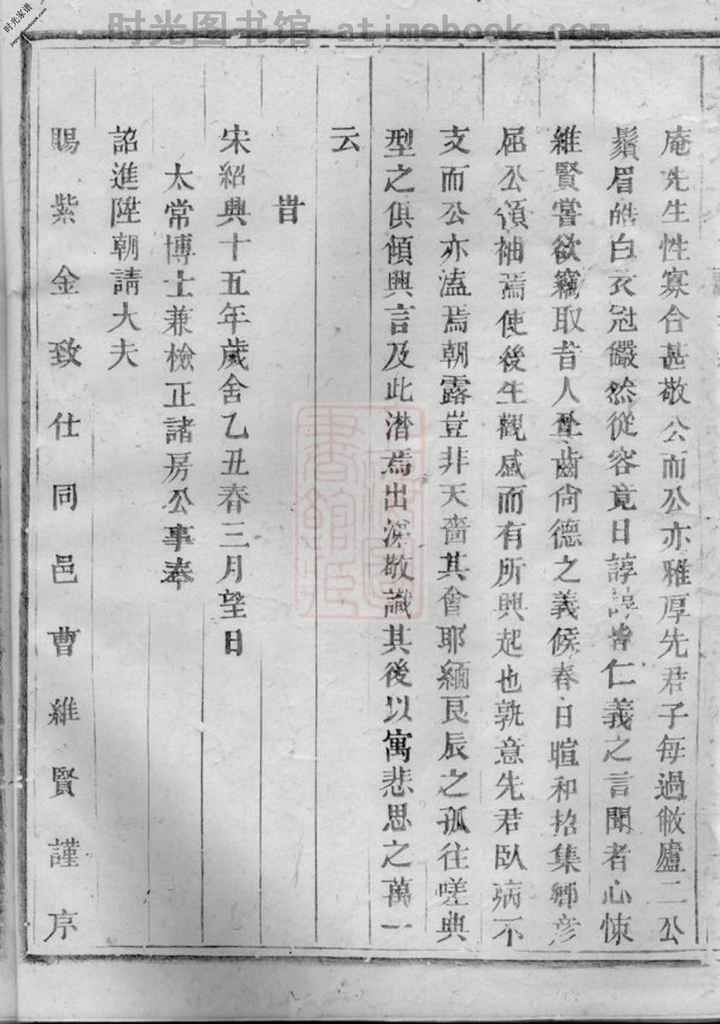 时光图书馆 atimebook.com
时光家谱
庵先生性寡合甚敬公而公亦雅厚先君子每過敝廬二公
鬚眉皓白衣冠儼然從容竟日諄諄皆仁義之言聞者心悚
維賢嘗欲竊取昔人登齒尚德之義候春日暄和招集鄉彥
屈公領袖焉使後生觀感而有所興起也孰意先君臥病不
支而公亦溘焉朝露豈非天嗇其會耶緬良辰之孤往嗟典
型之俱傾興言及此潸焉出涕敬識其後以寓悲思之萬一
云
昔
宋紹興十五年歲舍乙丑春三月望日
太常博士兼檢正諸房公事奉
詔進陞朝請大夫
賜紫金致仕同邑曹維賢謹序